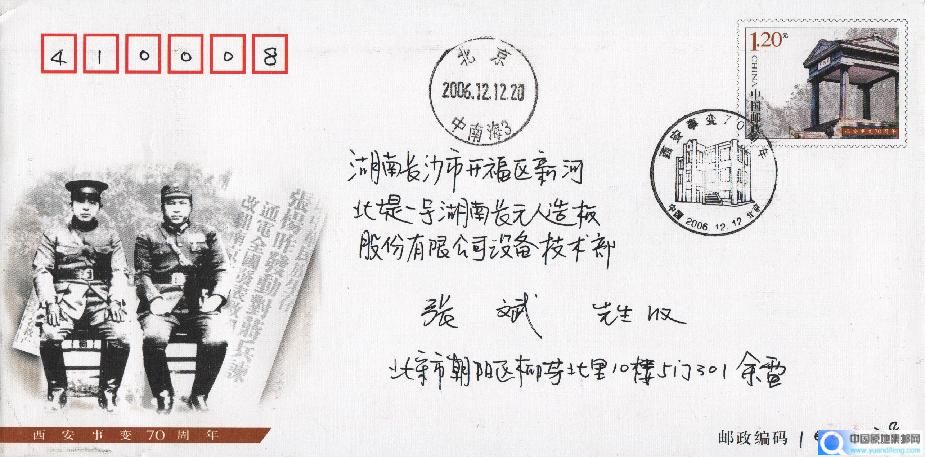 410008
北京
2006.12.12.20
中南海3
1.20元
CHINA
中国邮政
西安事变70周年
西安事变70周年
中国 2006.12.12 北京
湖南长沙市开福区新河
北堤一号湖南长元人造板
股份有限公司设备技术部
张 斌 先生收
北京市朝阳区柳芳北里10楼5门301 余雪
張楊昨發動對蔣兵諫
通電全國
西安事变70周年
邮政编码 1
中国原地集邮网
www.yuandifeng.com